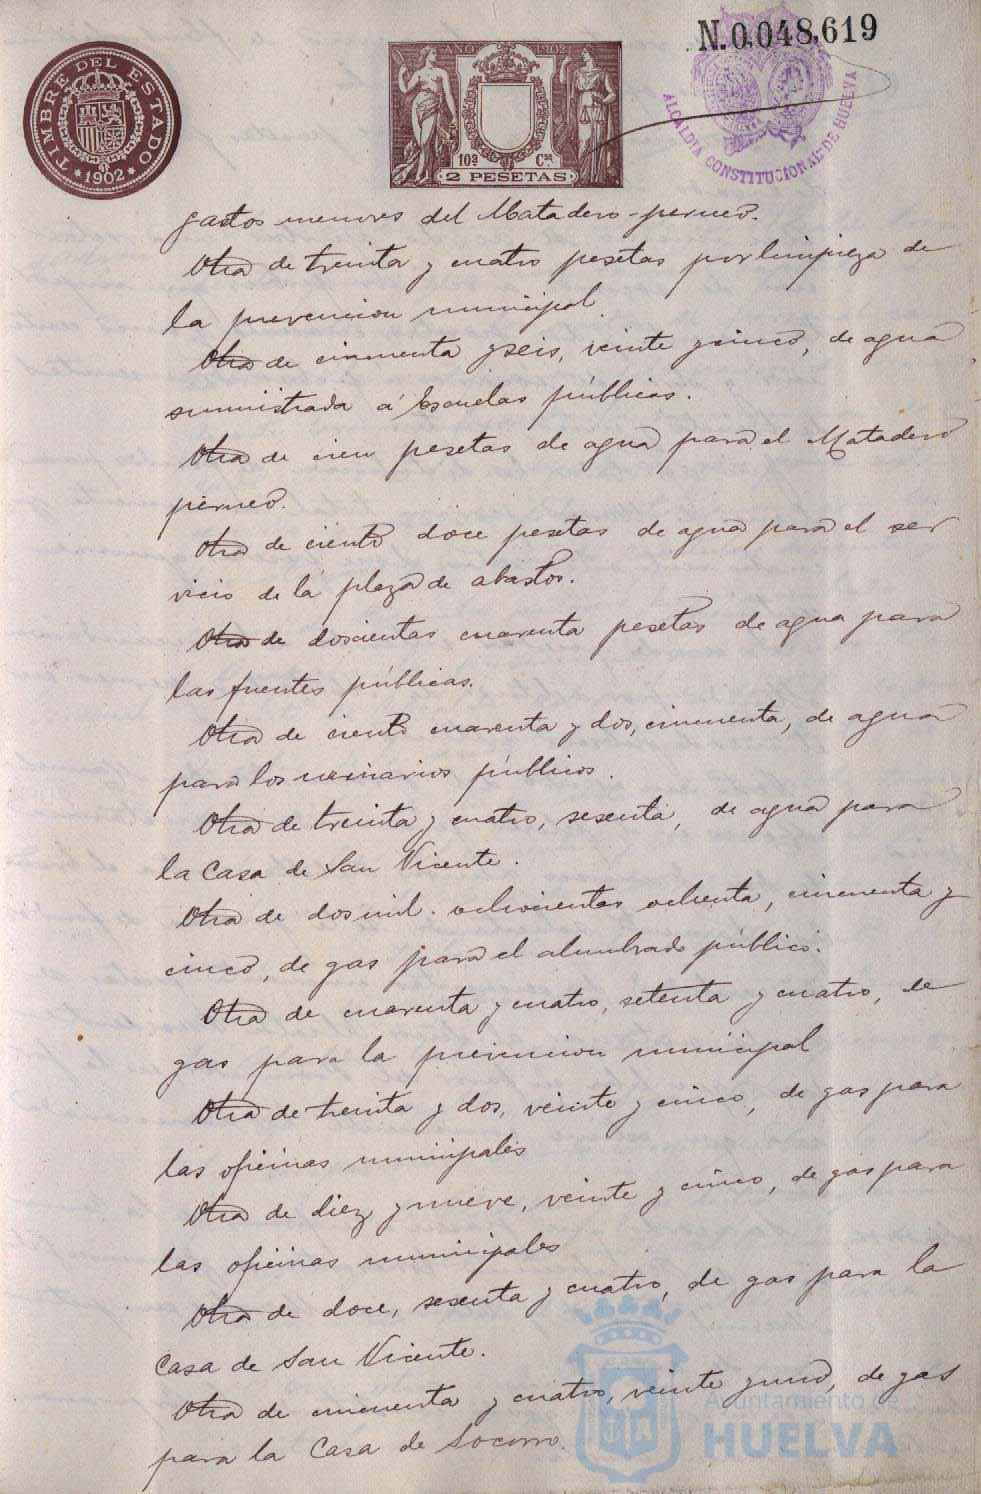 N.0,048,619
TIMBRE DEL ESTADO
*1902*
AÑO 1902
10ª Cse
2 PESETAS
ALCALDIA CONSTITUCIONAL DE HUELVA
gastos menores del Matadero perneo.
Otra de treinta y cuatro pesetas por limpieza de
la prevencion municipal.
Otra de cincuenta y seis, veinte y cinco, de agua
suministrada á Escuelas públicas.
Otra de cien pesetas de agua para el Matadero
perneo.
Otra de ciento doce pesetas de agua para el ser
vicio de la plaza de abastos.
Otra de doscientas cuarenta pesetas de agua para
las fuentes públicas.
Otra de ciento cuarenta y dos, cincuenta, de agua
para los urinarios públicos.
Otra de treinta y cuatro, sesenta, de agua para
la Casa de San Vicente.
Otra de dos mil ochocientas ochenta, cincuenta y
cinco, de gas para el alumbrado público.
Otra de cuarenta y cuatro, setenta y cuatro, de
gas para la prevencion municipal
Otra de treinta y dos, veinte y cinco, de gas para
las oficinas municipales
Otra de diez y nueve, veinte y cinco, de gas para
las oficinas municipales
Otra de doce, sesenta y cuatro, de gas para la
Casa de San Vicente.
Otra de cincuenta y cuatro, veinte y uno, de gas
para la Casa de Socorro.
Ayuntamiento de
HUELVA